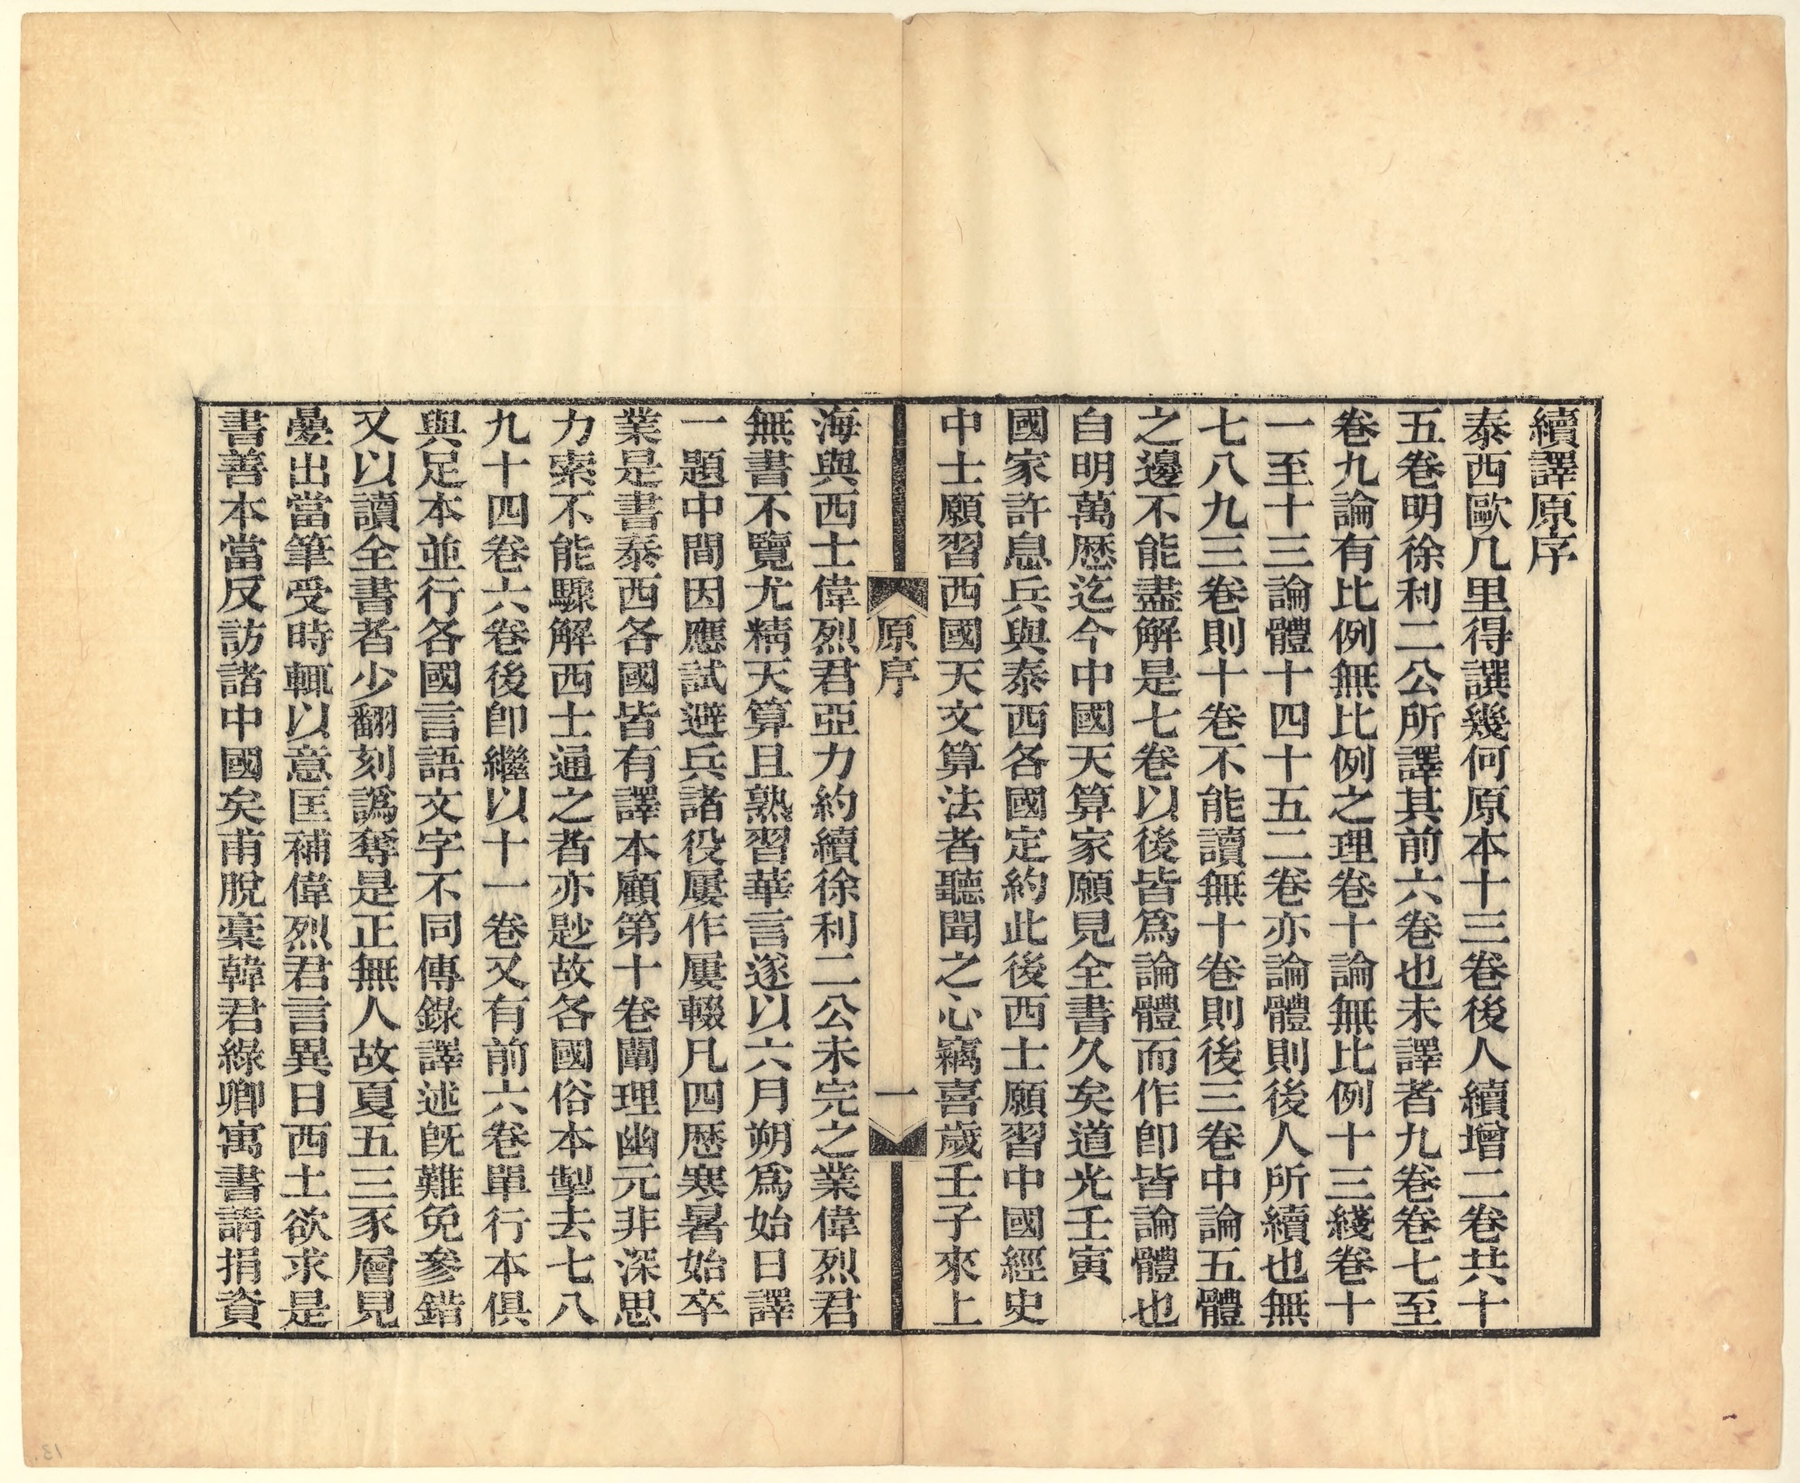 續譯原序
泰西歐几里得譔幾何原本十三卷後人續增二卷共十
五卷明徐利二公所譯其前六卷也未譯者九卷卷七至
卷九論有比例無比例之理卷十論無比例十三綫卷十
一至十三論體十四十五二卷亦論體則後人所續也無
七八九三卷則十卷不能讀無十卷則後三卷中論五體
之邊不能盡解是七卷以後皆爲論體而作卽皆論體也
自明萬歷迄今中國天算家願見全書久矣道光壬寅
國家許息兵與泰西各國定約此後西士願習中國經史
中士願習西國天文算法者聽聞之心竊喜歲壬子來上
原序
一
海與西士偉烈君亞力約續徐利二公未完之業偉烈君
無書不覽尤精天算且熟習華言遂以六月朔爲始日譯
一題中間因應試避兵諸役屢作屢輟凡四歷寒暑始卒
業是書泰西各國皆有譯本顧第十卷闡理幽元非深思
力索不能驟解西士通之者亦尟故各國俗本掣去七八
九十四卷六卷後卽繼以十一卷又有前六卷單行本俱
與足本並行各國言語文字不同傳錄譯述旣難免參錯
又以讀全書者少翻刻譌奪是正無人故夏五三豕層見
疊出當筆受時輒以意匡補偉烈君言異日西土欲求是
書善本當反訪諸中國矣甫脫稾韓君綠卿寓書請捐資
13.